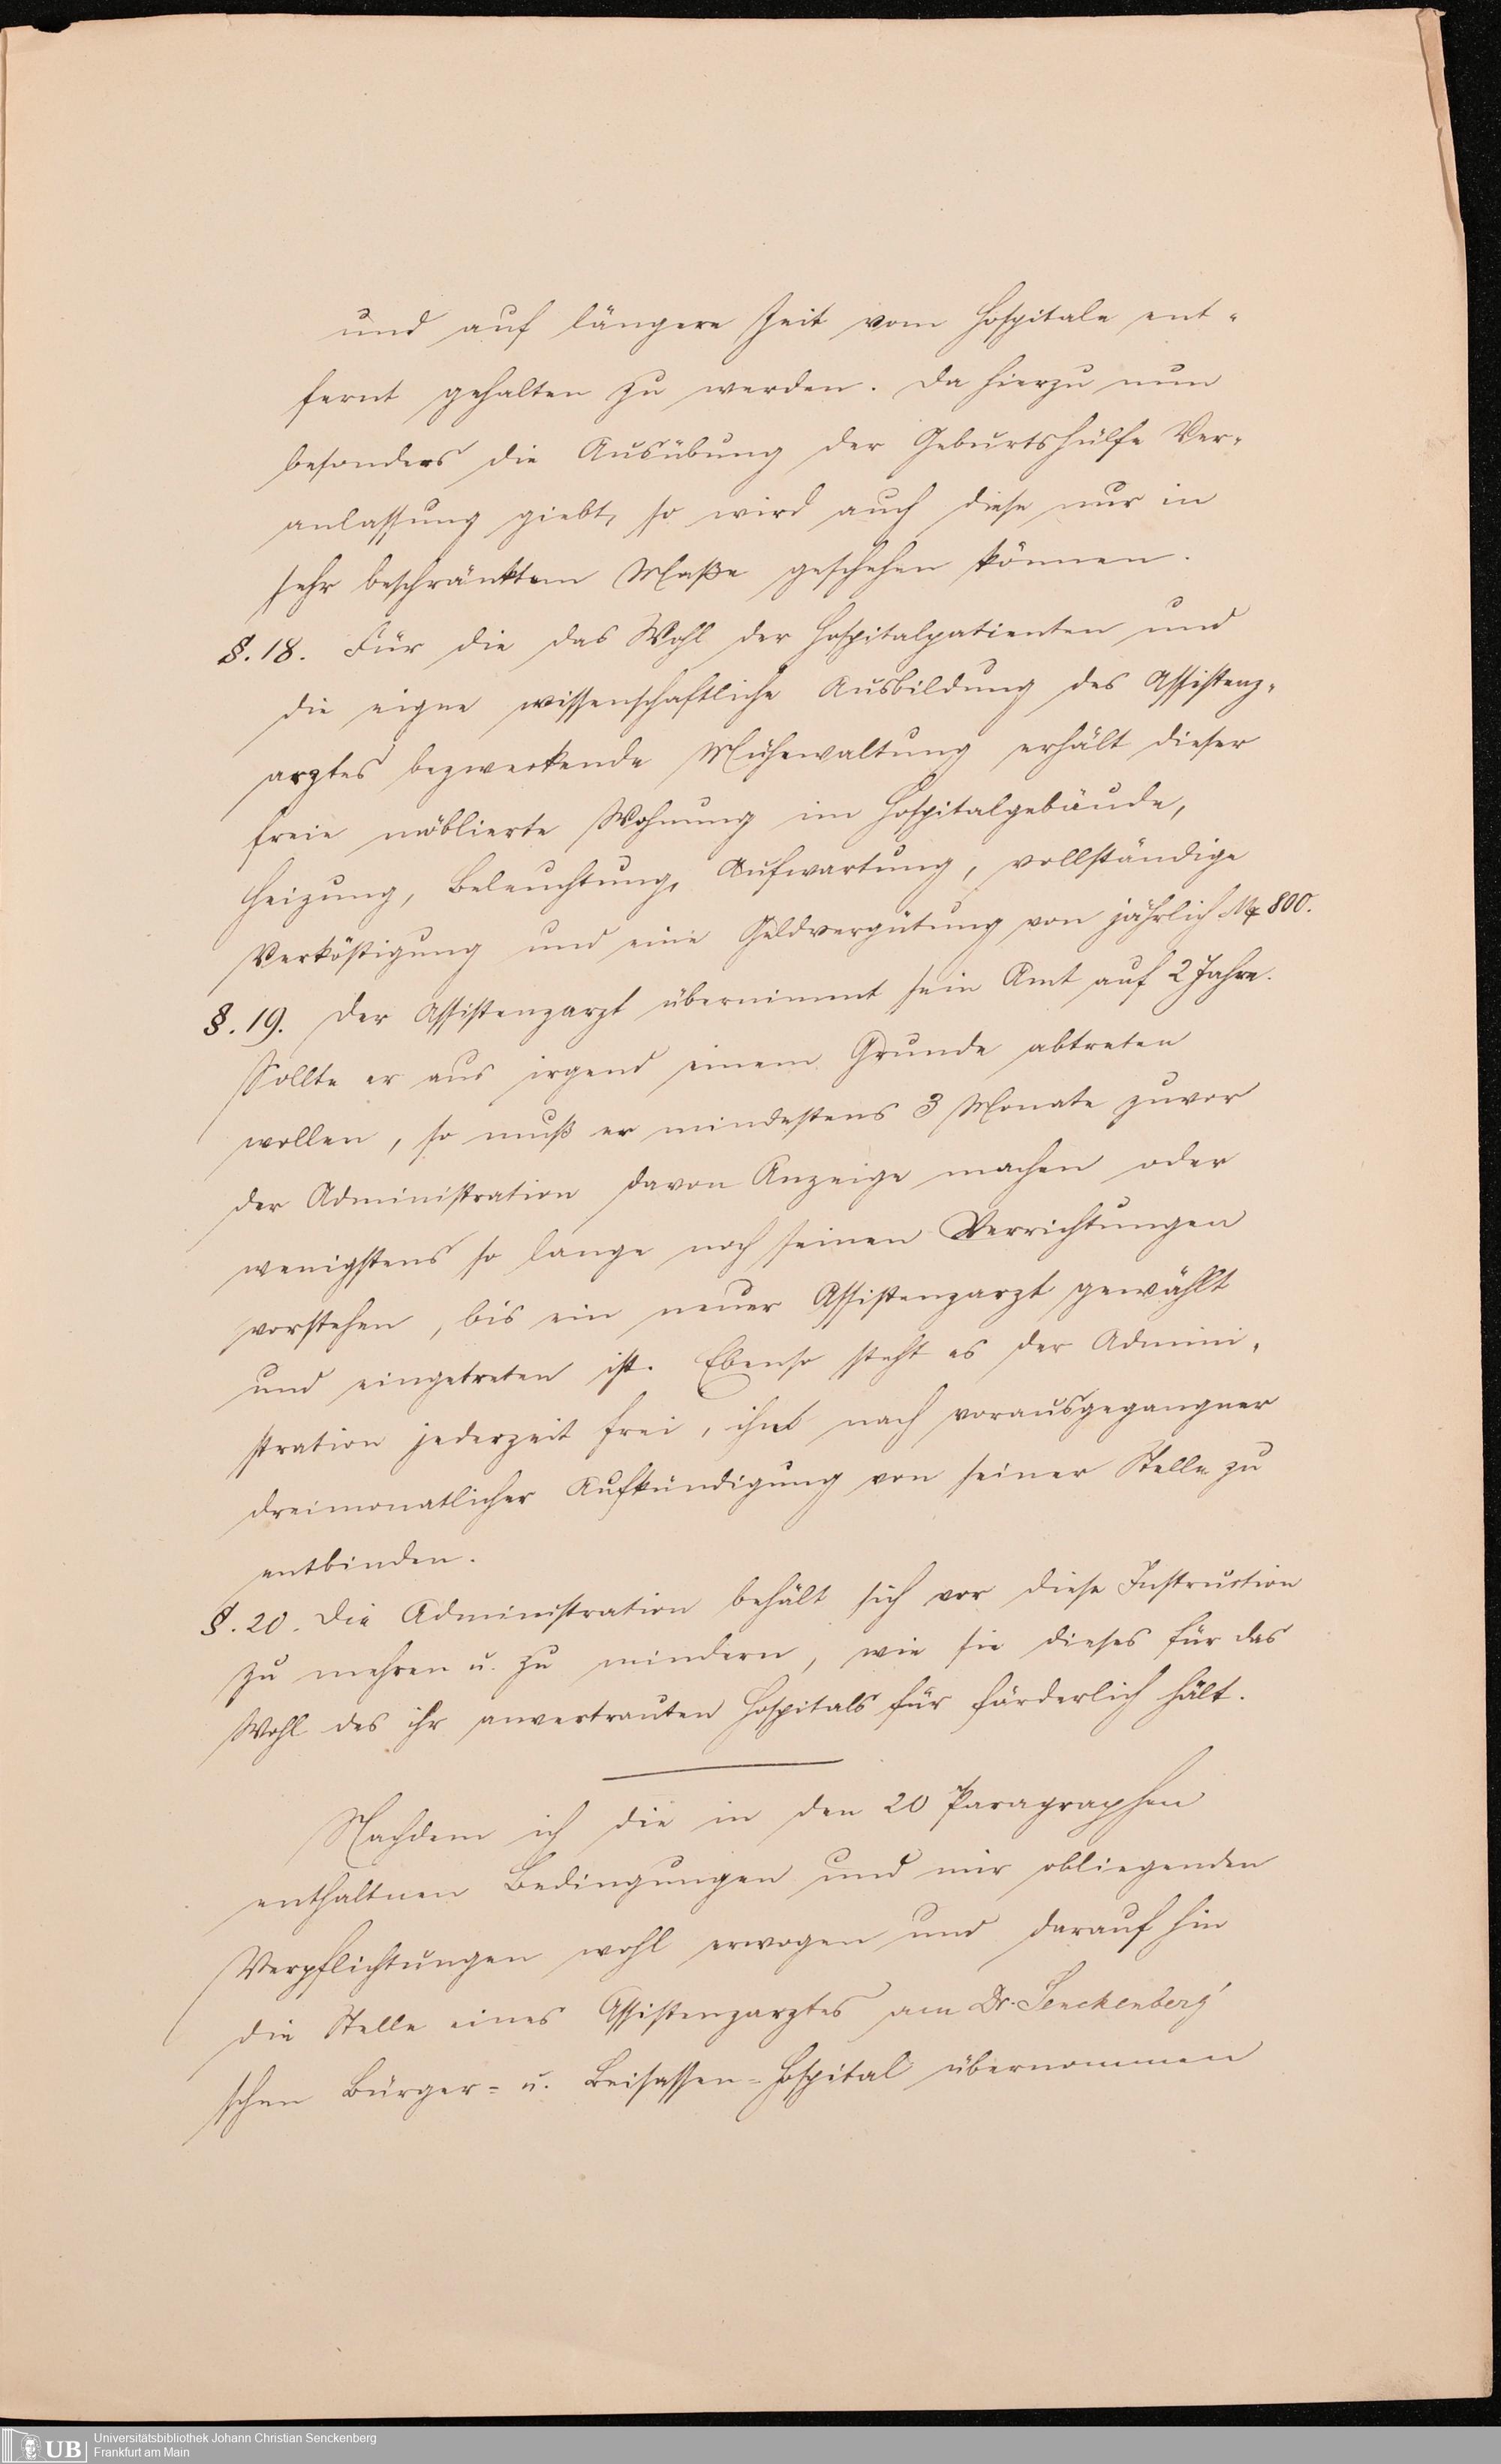 und auf längere Zeit vom Hospitale ent-
fernt gehalten zu werden. Da hierzu nun
besonders die Ausübung der Geburtshülfe Ver-
anlassung giebt, so wird auch diese nur in
sehr beschränktem Maße geschehen können.
§. 18. Für die das Wohl der Hospitalpatienten und
die eigne wissenschaftliche Ausbildung des Assistenz-
arztes bezweckende Mühewaltung erhält dieser
freie möblierte Wohnung im Hospitalgebäude,
Heizung, Beleuchtung, Aufwartung, vollständige
Verköstigung und eine Geldvergütung von jährlich M 800.
§. 19. Der Assistenzarzt übernimmt sein Amt auf 2 Jahre.
Sollte er aus irgend einem Grunde abtreten
wollen, so muß er mindestens 3 Monate zuvor
der Administration davon Anzeige machen oder
wenigstens so lange noch seinen Verrichtungen
vorstehen, bis ein neuer Assistenzarzt gewählt
und eingetreten ist. Ebenso steht es der Admini-
stration jederzeit frei, nach vorausgegangner
dreimonatlicher Aufkündigung von seiner Stelle zu
entbinden.
§. 20. Die Administration behält sich vor diese Instruction
zu mehren u. zu mindern, wie sie dieses für das
Wohl des ihr anvertrauten Hospitals für förderlich hält.
Nachdem ich die in den 20 Paragraphen
enthaltnen Bedingungen und mir obliegenden
Verpflichtungen wohl erwogen und darauf hin
die Stelle eines Assistenzarztes am Dr. Senckenberg'
schen Bürger- u. Beisassen-Hospital übernommen
UB
Universitätsbibliothek Johann Christian Senckenberg
Frankfurt am Main